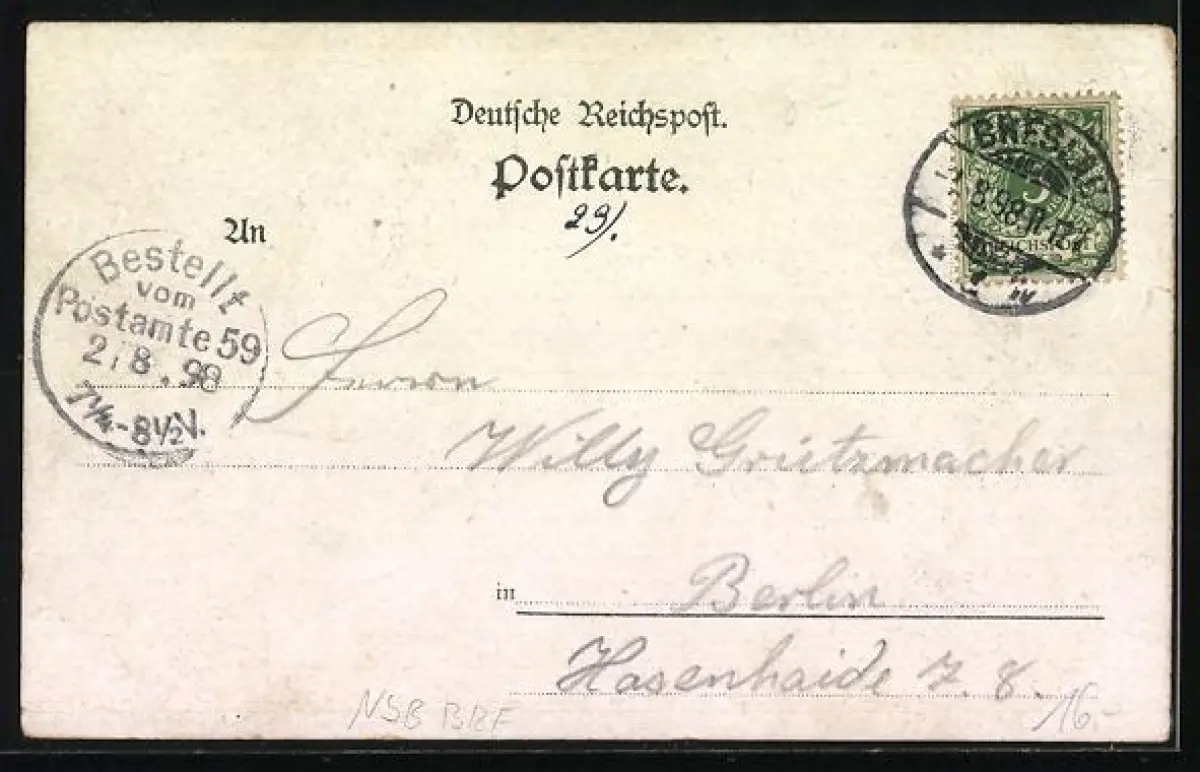 Deutsche Reichspost.
Postkarte.
29/.
BRESLAU
8.98.11-12
5
REICHSPOST
An
Bestellt
vom
Postamte 59
2/8.98
7¼-8½N.
Herrn
Willy Grützmacher
in Berlin
Hasenhaide 7. 8.
16.-
NSB BRF